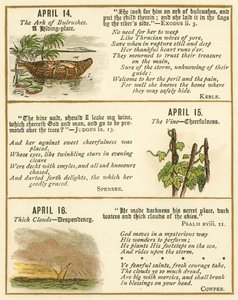 APRIL 14.
The Ark of Bulrushes.
A Hiding-place.
"She took for him an ark of bulrushes, and
put the child therein; and she laid it in the flags
by the river's side."—Exodus ii. 3.
No need for her to weep
Like Thracian wives of yore,
Save when in rapture still and deep
Her thankful heart runs o'er.
They mourned to trust their treasure
on the main,
Sure of the storm, unknowing of their
guide:
Welcome to her the peril and the pain,
For well she knows the home where
they may safely hide.
Keble.
"The vine said, Should I leave my wine,
which cheereth God and man, and go to be pro-
moted over the trees?"—Judges ix. 13.
And her against sweet cheerfulness was
placed,
Whose eyes, like twinkling stars in evening
cleare
Were deckt with smyles, and all sad humours
chased,
And darted forth delights, the which her
goodly graced.
Spenser.
APRIL 15.
The Vine—Cheerfulness.
APRIL 16.
Thick Clouds—Despondency.
"He made darkness his secret place, dark
waters and thick clouds of the skies."
Psalm xviii. 11.
God moves in a mysterious way
His wonders to perform;
He plants His footsteps on the sea,
And rides upon the storm.
Ye fearful saints, fresh courage take,
The clouds ye so much dread,
Are big with mercies, and shall break
In blessings on your head.
Cowper.